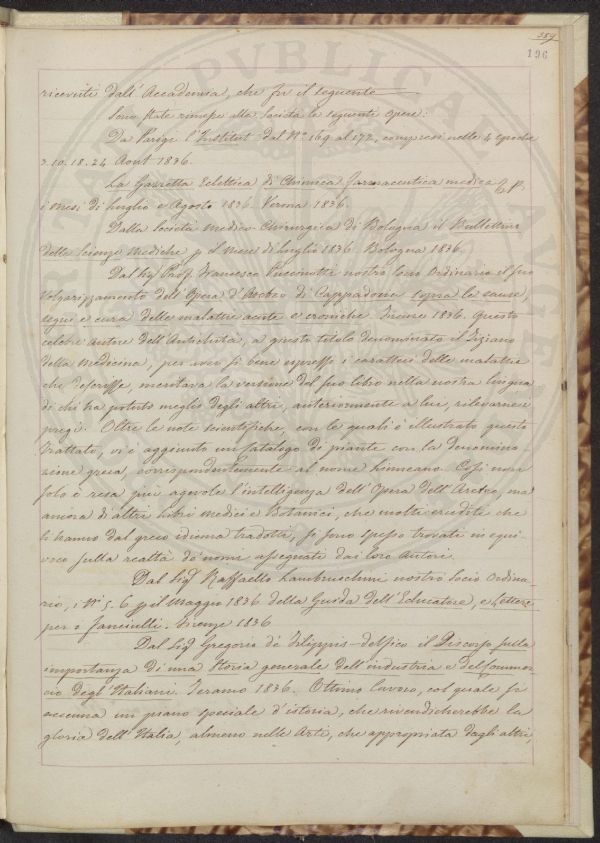 359
196
ricevuti dall'Accademia, che fu il seguente
Sono state rimesse alla Società le seguenti Opere:
Da Parigi l'Institut dal N.º 169 al 172, compresi nelle 4 epoche
3. 10. 18. 24 Aout 1836.
La Gazzetta Eclettica di Chimica farmaceutica medica &
i mesi di Luglio e Agosto 1836. Verona 1836.
Dalla Società Medico-Chirurgica di Bologna il Bullettino
delle Scienze Mediche p il Mese di Luglio 1836. Bologna 1836.
Dal Sig. Prof. Francesco Puccinotti nostro Socio Ordinario il suo
Volgarizzamento dell'Opera d'Areteo di Cappadocia sopra le cause,
segni e cura delle malattie acute e croniche. Firenze 1836. Questo
celebre autore dell'Antichità, a giusto titolo denominato il Tiziano
della Medicina, per aver sì bene espresso i caratteri delle malattie
che descrisse, meritava la versione del suo libro nella nostra lingua
di chi ha potuto meglio degli altri, anteriormente a lui, rilevarne i
pregi. Oltre le note scientifiche, con le quali è illustrato questo
Trattato, vi è aggiunto un Catalogo di piante con la denomina-
zione greca, corrispondentemente al nome linneano. Così non
solo è resa più agevole l'intelligenza dell'Opera dell'Areteo, ma
ancora di altri libri medici e Botanici, che molti eruditi che
li hanno dal greco idioma tradotti, si sono spesso trovati in equi-
voco sulla realtà de' nomi assegnati dai loro Autori.
Dal Sig. Raffaello Lambruschini nostro Socio Ordina-
rio, i N.i 5. 6 p il Maggio 1836 della Guida dell'Educatore, e Letture
per i Fanciulli. Firenze 1836
Dal Sig. Gregorio de' Filippis-Delfico il Discorso sulla
importanza di una Storia generale dell'industria e del Commer-
cio degl'Italiani. Teramo 1836. Ottimo lavoro, col quale si
accenna un piano speciale d'istoria, che rivendicherebbe la
gloria dell'Italia, almeno nelle Arti, che appropriata dagli altri,